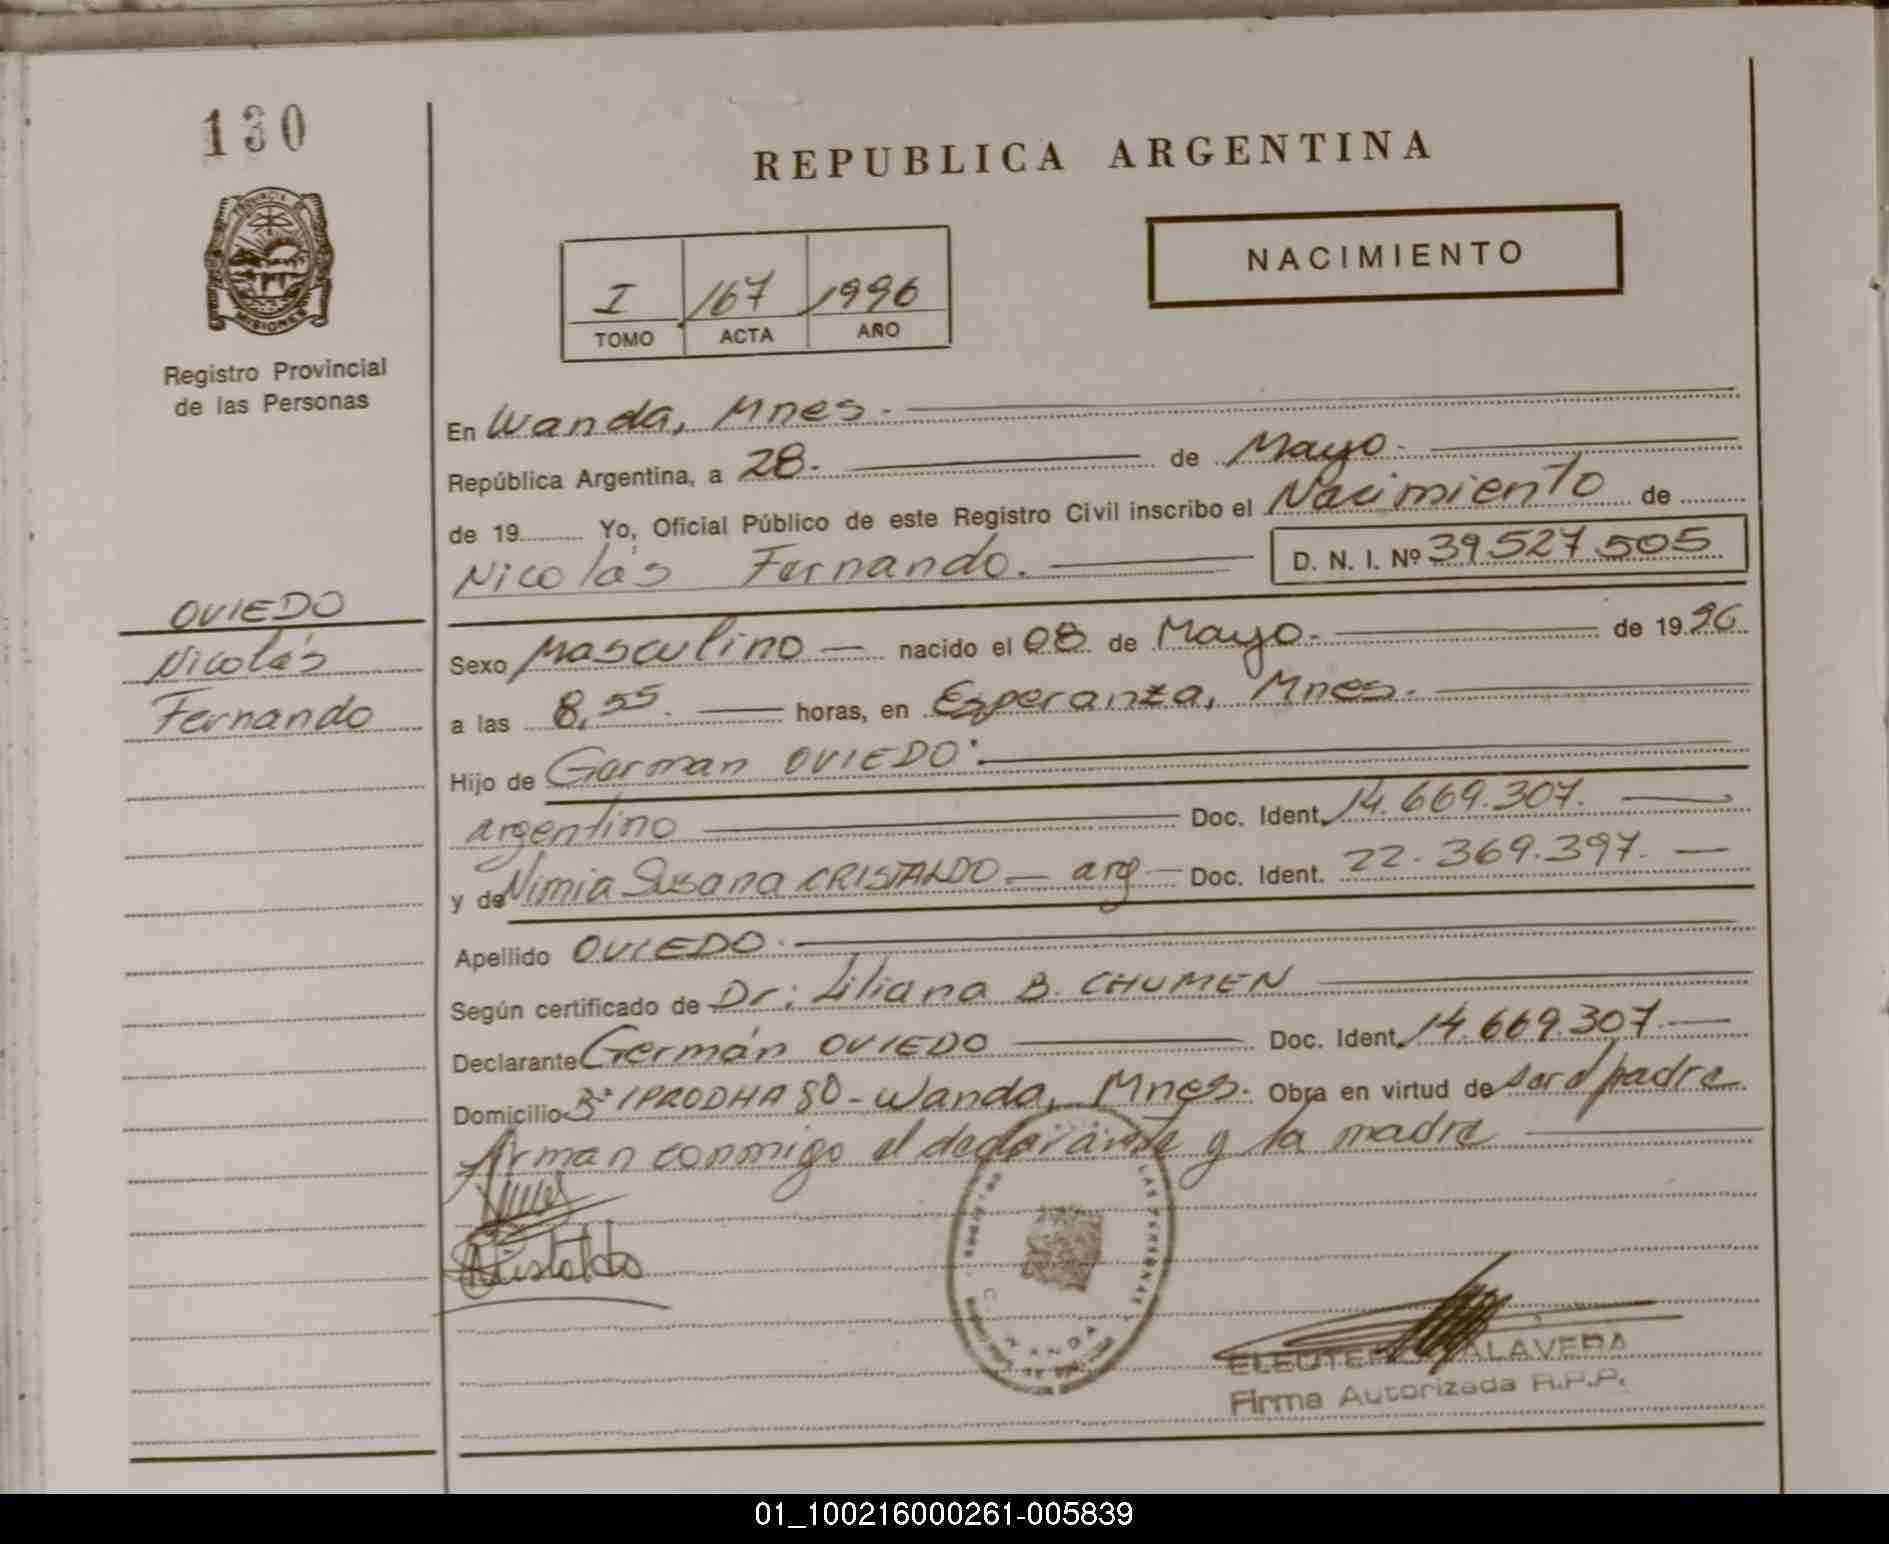 130
REPUBLICA ARGENTINA
PROVINCIA DE
MISIONES
Registro Provincial
de las Personas
NACIMIENTO
I 167 1996
TOMO ACTA AÑO
En Wanda, Mnes.
República Argentina, a 28. de Mayo.
de 19 Yo, Oficial Público de este Registro Civil inscribo el Nacimiento de
Nicolás Fernando. D. N. I. Nº 39.527.505
OVIEDO
Nicolás
Fernando
Sexo Masculino nacido el 08 de Mayo. de 1996
a las 8,55. horas, en Esperanza, Mnes.
Hijo de German OVIEDO
argentino Doc. Ident. 14.669.307.
y de Nimia Susana CRISTALDO arg Doc. Ident. 22.369.397.
Apellido OVIEDO.
Según certificado de Dr: Liliana B. CHUMEN
Declarante Germán OVIEDO Doc. Ident. 14.669.307.
Domicilio Bº IPRODHA 80 - Wanda, Mnes. Obra en virtud de ser el padre
firman conmigo el declarante y la madre
LAS PERSONAS
WANDA
Cristaldo
ELEUTERIO TALAVERA
Firma Autorizada R.P.P.
01_100216000261-005839